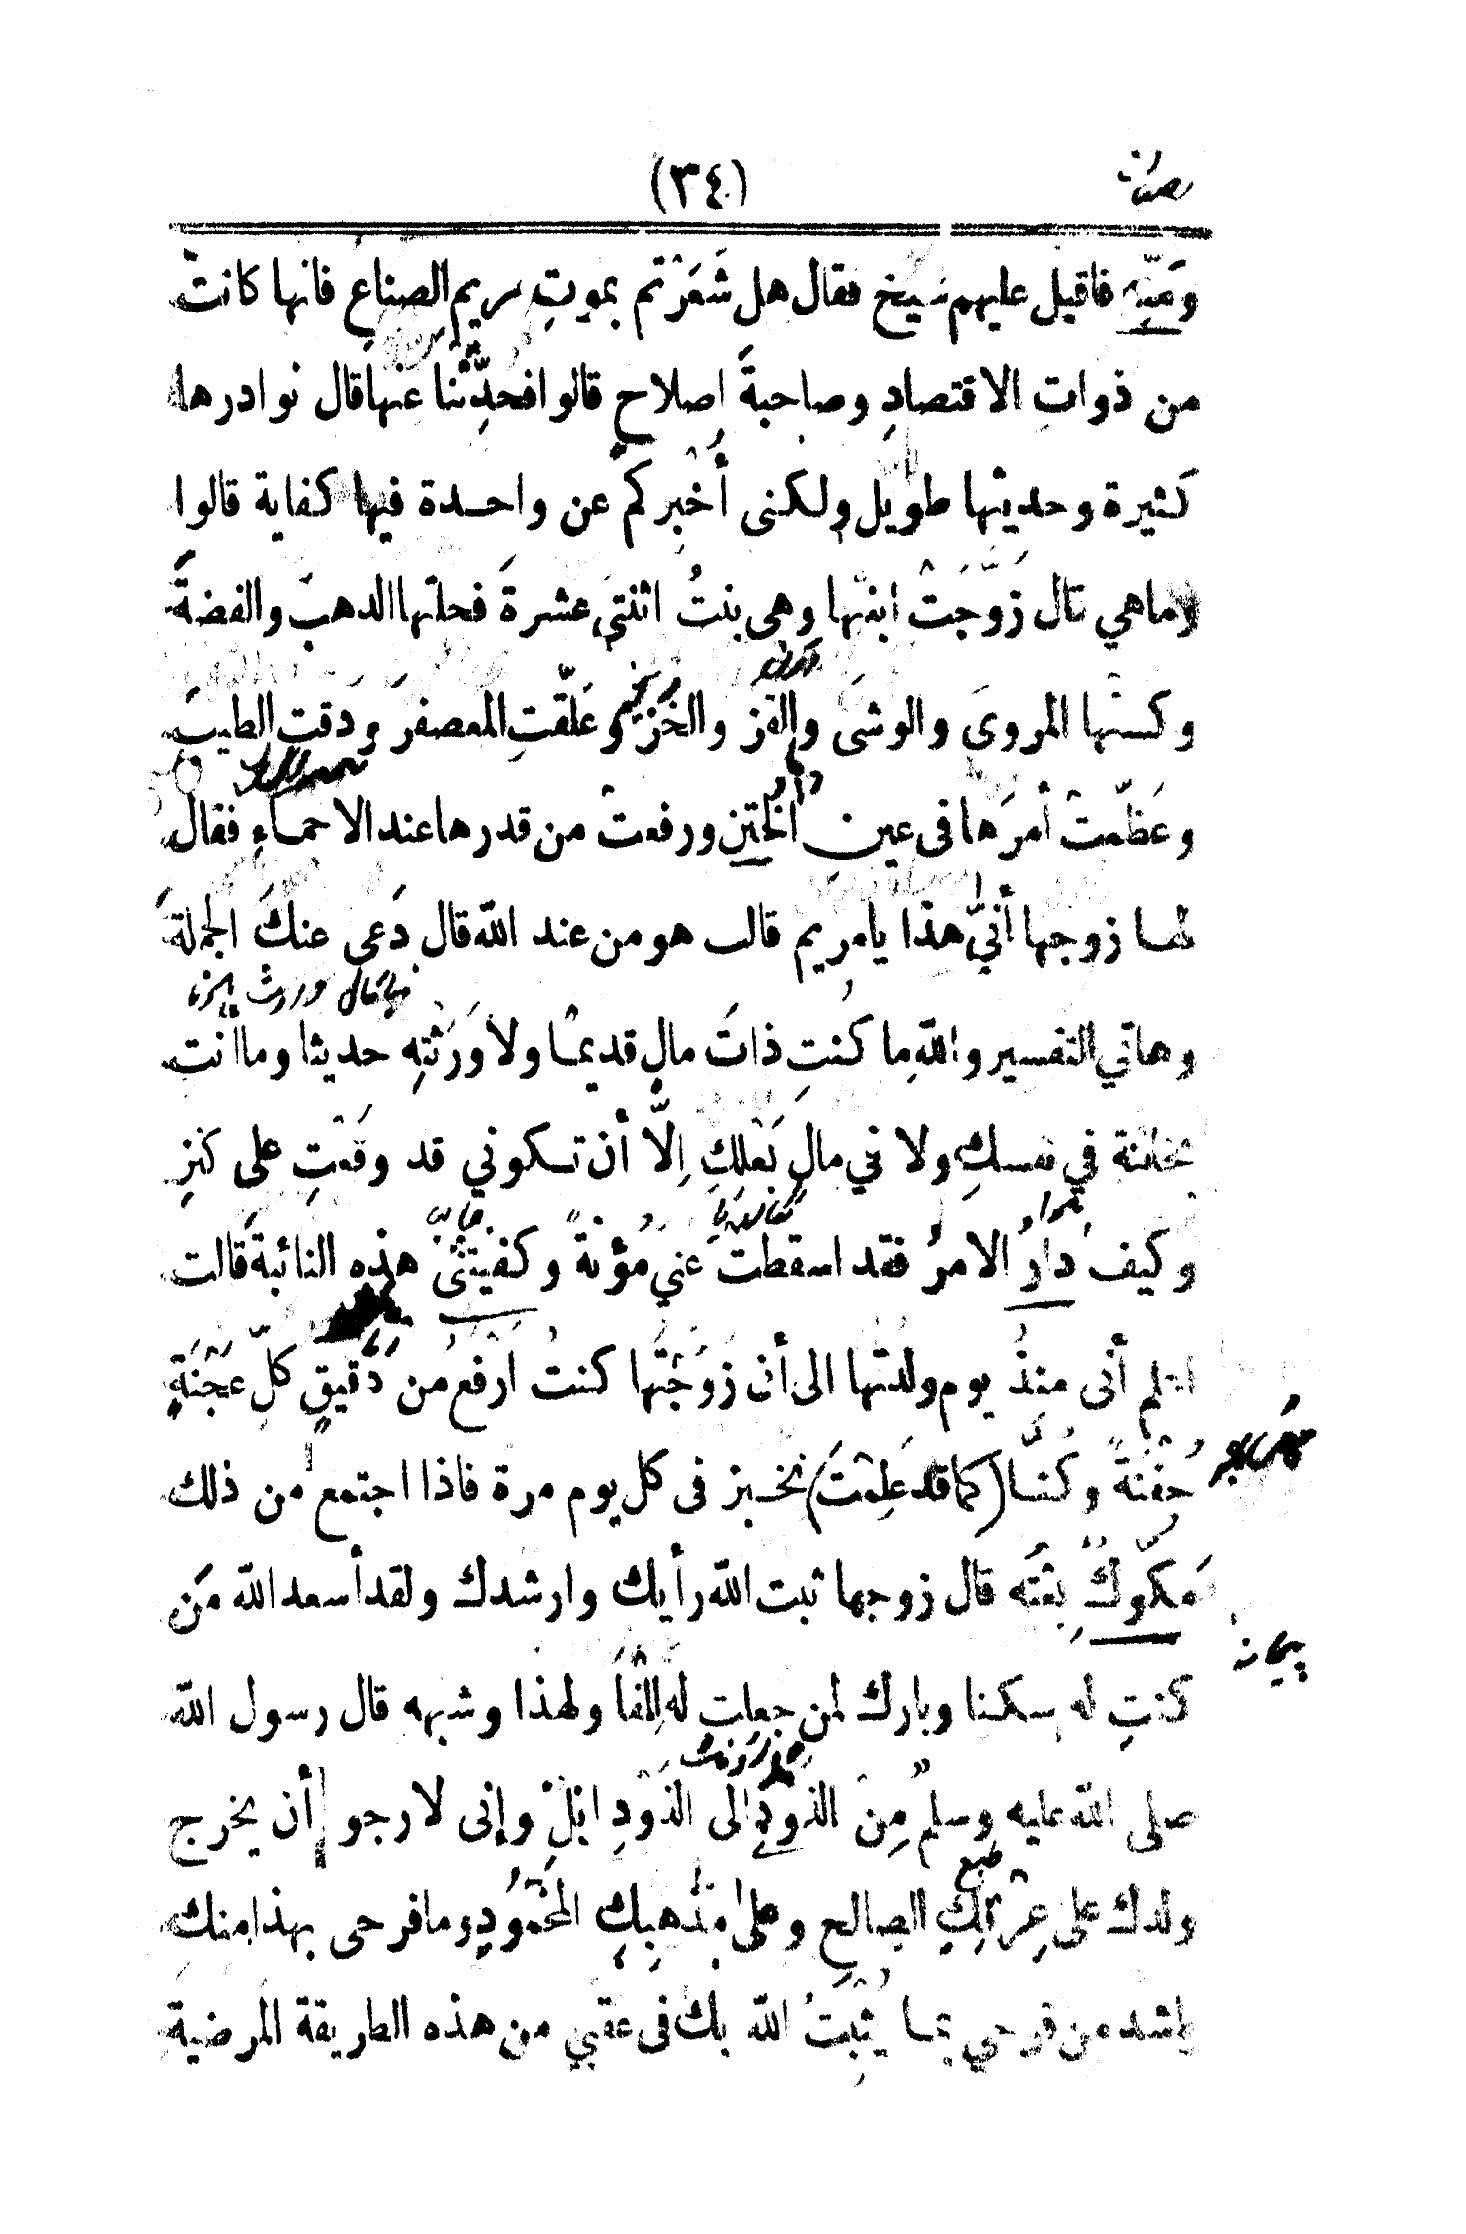 (٣٤)
ومنّه فاقبل عليهم شيخ فقال هل شَعَرْتم بموتِ مريم الصناعِ فانها كانتْ
من ذواتِ الاقتصادِ وصاحبةَ إصلاحٍ قالوا فحدِّثْنا عنها قال نوادرها
كثيرة وحديثها طويل ولكنى أُخْبِركمْ عن واحدة فيها كفاية قالوا
وما هي قال زَوَّجَتْ ابنتَها وهى بنتُ اثنتيْ عشرةَ فحلتها الذهبَ والفضةَ
وكستها المروىَ والوشىَ والقز والخَزَ وعَلّقتِ المعصفرَ ودقتِ الطيبَ
وعَظّمتْ أمرَها فى عينِ الخَتَنِ ورفعتْ من قدرها عند الاحماءِ فقال
لها زوجها أنّى هذا يا مريم قالت هو من عند الله قال دَعى عنكِ الجملةَ
وهاتي التفسير واللهِ ما كُنتِ ذاتَ مالٍ قديمًا ولا وَرَثْتِه حديثا وما انتِ
بخائنة في نفسكِ ولا في مالِ بَعْلِكِ إلَّا أن تكوني قد وقعتِ على كنزٍ
وكيف دارُ الامرُ فقد اسقطتْ عني مُؤنةً وكفيتِنى هذه النائبةَ قالت
اعلم أنى منذُ يوم ولدتها الى أن زوَجْتُها كنتُ ارْفعُ من دَقيقِ كلّ عَجْنَةٍ
حُفْنَةً وكُنَّا (كما قد عَلِمْتَ) نخبز فى كل يوم مرة فاذا اجتمع من ذلك
مَكّوكٌ بِعْتُه قال زوجها ثبت الله رأيك وارشدك ولقد أسعد الله مَن
كنتِ له سكنا وبارك لمن جعلتِ له إلْفاً ولهذا وشبهه قال رسول الله
صلى الله عليه وسلم مِنَ الذودِ الى الذَوْدِ ابْلٌ وإنى لارجو أن يخرج
ولدك على عِرْقِكِ الصالحِ وعلى مذهبِكِ المَحْمُودِ وما فرحى بهذا منك
باشد من فرحي بما يُثَبِتُ الله بك فى عقبي من هذه الطريقة المرضية